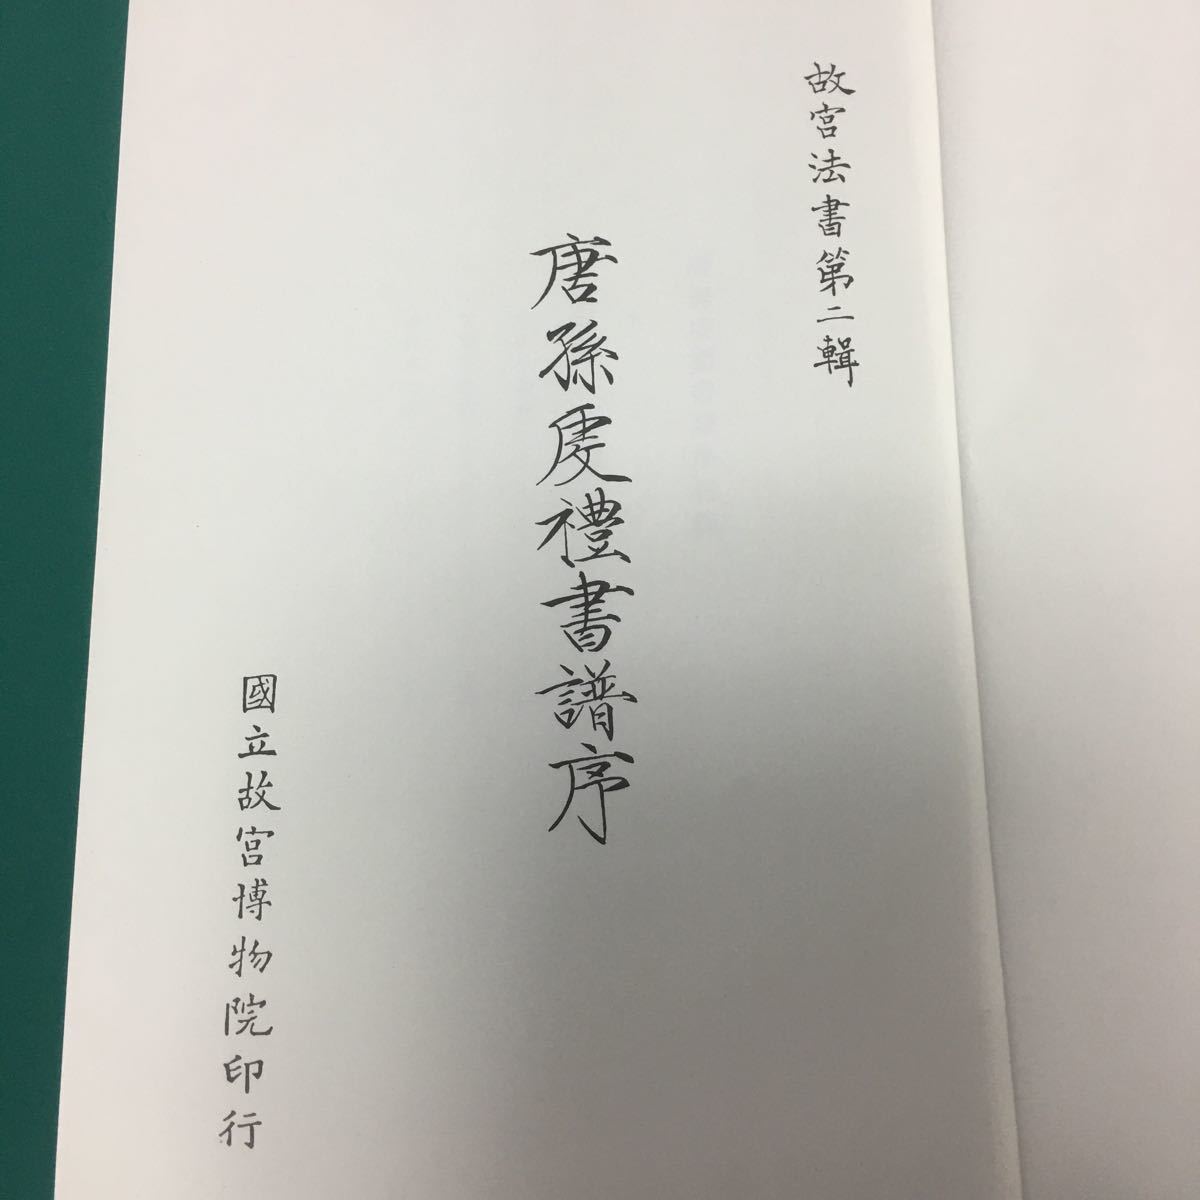 故宮法書第二輯
唐孫虔禮書譜序
國立故宮博物院印行